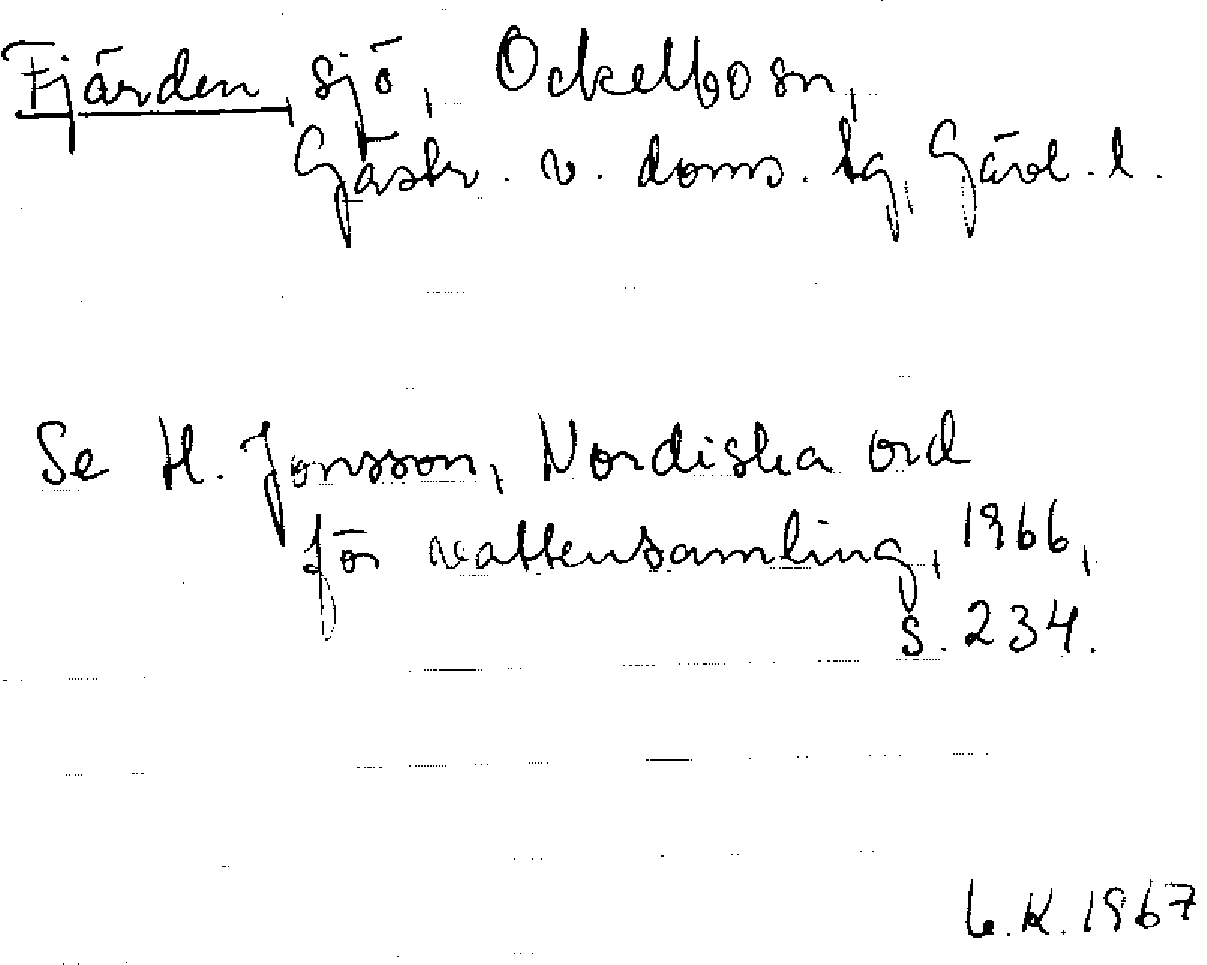 Fjärden, sjö, Ockelbo sn,
Gästr. v. doms. tg, Gävl. l.
Se H. Jonsson, Nordiska ord
för vattensamling, 1966,
s. 234.
L. K. 1967